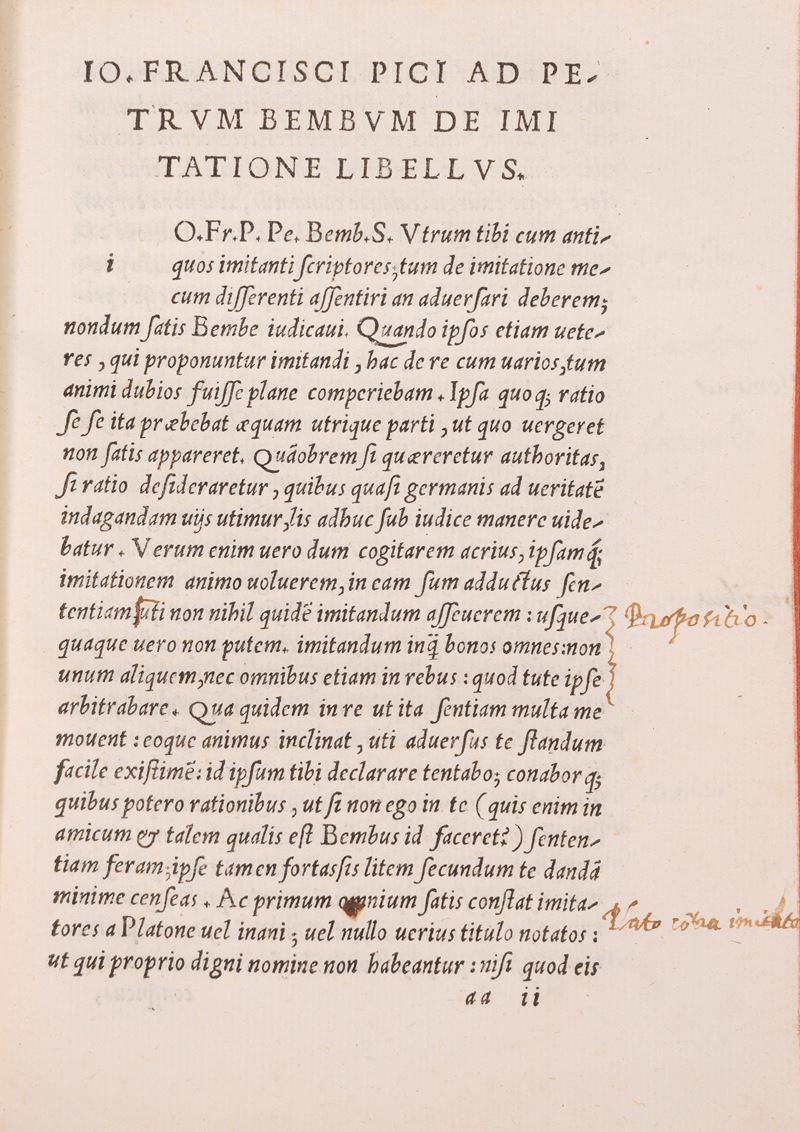 IO. FRANCISCI PICI AD PE-
TRVM BEMBVM DE IMI
TATIONE LIBELLVS.
O.Fr.P. Pe. Bemb.S. Vtrum tibi cum anti-
i quos imitanti ſcriptores, tum de imitatione me-
cum differenti aſſentiri an aduerſari deberem;
nondum ſatis Bembe iudicaui. Quando ipſos etiam uete-
res, qui proponuntur imitandi, hac de re cum uarios, tum
animi dubios fuiſſe plane comperiebam. Ipſa quoq; ratio
ſe ſe ita præbebat æquam utrique parti, ut quo uergeret
non ſatis appareret. Quãobrem ſi quæreretur authoritas,
ſi ratio deſideraretur, quibus quaſi germanis ad ueritatē
indagandam uijs utimur, lis adhuc ſub iudice manere uide-
batur. Verum enim uero dum cogitarem acrius, ipſamq́;
imitationem animo uoluerem, in eam ſum adductus ſen-
tentiam, uti non nihil quidē imitandum aſſeuerem: uſque-
quaque uero non putem. imitandum inq̃ bonos omnes: non
unum aliquem, nec omnibus etiam in rebus: quod tute ipſe
arbitrabare. Qua quidem in re ut ita ſentiam multa me
mouent: eoque animus inclinat, uti aduerſus te ſtandum
facile exiſtimē: id ipſum tibi declarare tentabo; conaborq;
quibus potero rationibus, ut ſi non ego in te (quis enim in
amicum & talem qualis eſt Bembus id faceret?) ſenten-
tiam feram; ipſe tamen fortaſſis litem ſecundum te dandã
minime cenſeas. Ac primum omnium ſatis conſtat imita-
tores a Platone uel inani; uel nullo uerius titulo notatos:
ut qui proprio digni nomine non habeantur: niſi quod eis
aa ii
Propositio.
Plato